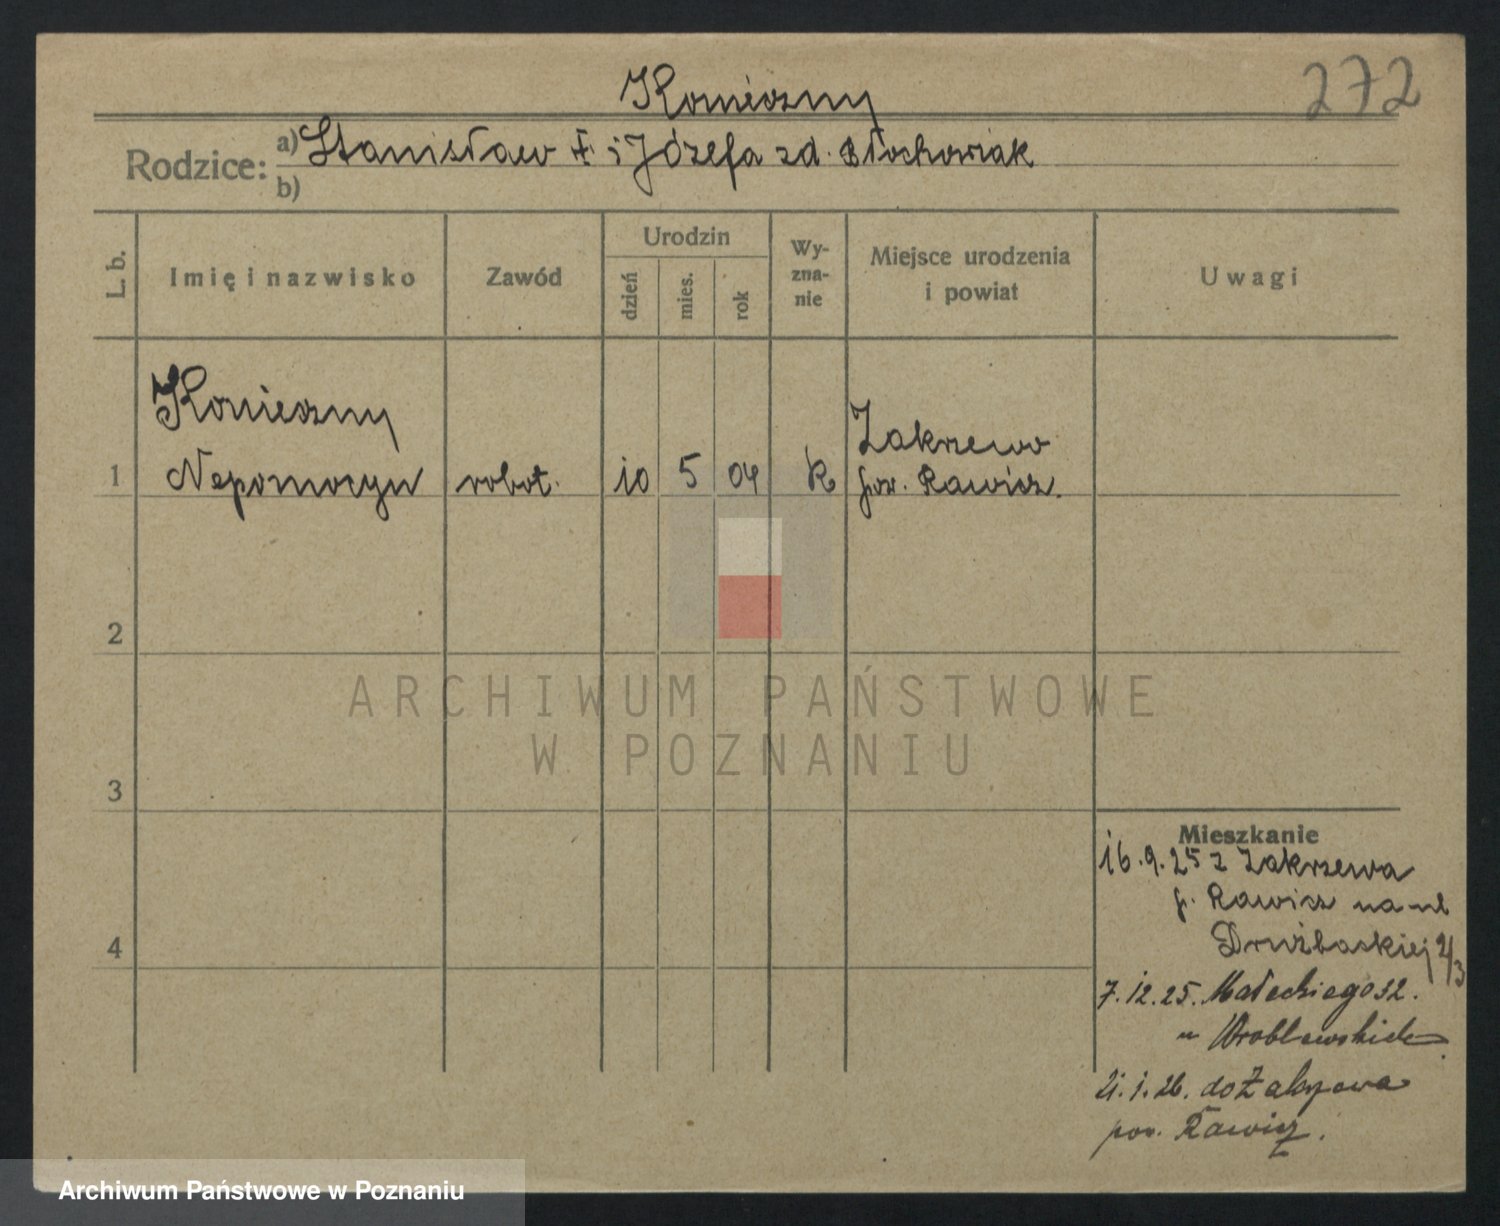 Konieczny
272
Rodzice: a) Stanisław † i Józefa zd. Błochowiak
b)
L. b.
Imię i nazwisko
Zawód
Urodzin
dzień
mies.
rok
Wy-
zna-
nie
Miejsce urodzenia
i powiat
Uwagi
Konieczny
Zakrzewo
1 Nepomucyn robot. 10 5 04 k pow. Rawicz.
2
3
4
ARCHIWUM PAŃSTWOWE
W POZNANIU
Mieszkanie
16.9.25 z Zakrzewa
p. Rawicz na ul
Drużbackiej 2/3
7.12.25. Małeckiego 32.
u Wroblewskich
21.1.26. do Zakrzewa
pow. Rawicz.
Archiwum Państwowe w Poznaniu